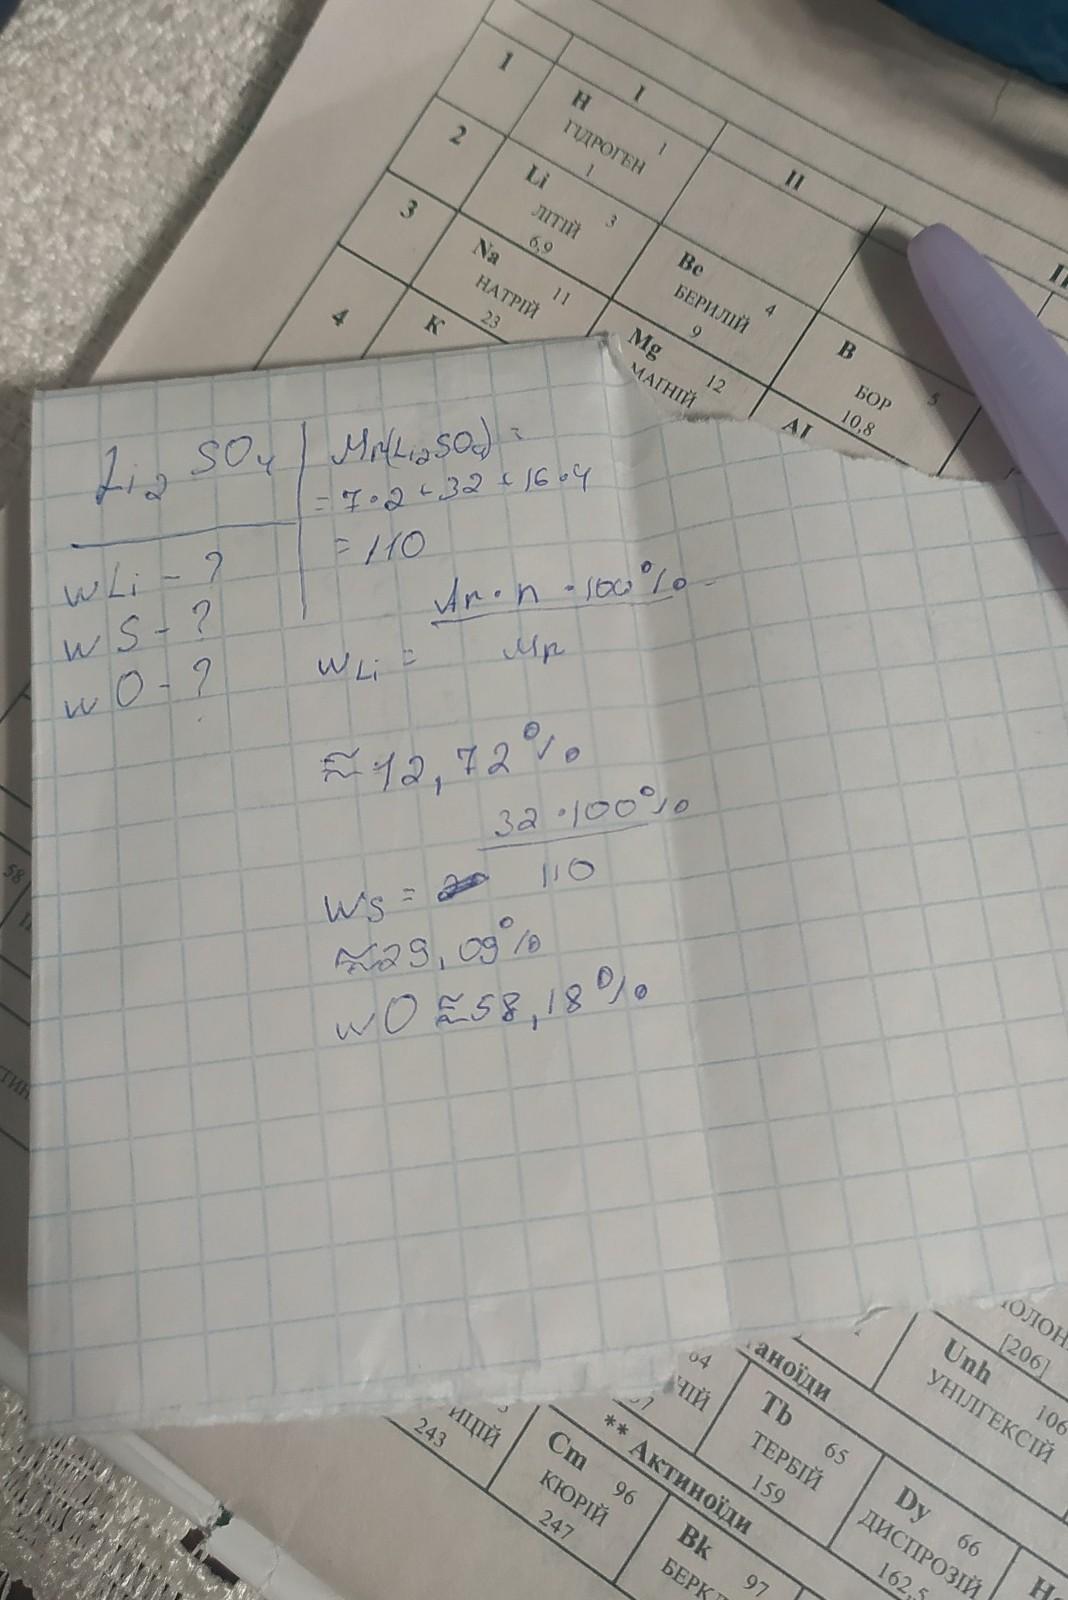 I
II
1
H
1
ГІДРОГЕН
1
2
Li
3
ЛІТІЙ
6,9
Be
4
БЕРИЛІЙ
9
B
5
БОР
10,8
3
Na
11
НАТРІЙ
23
Mg
12
МАГНІЙ
Al
4
K
Li₂SO₄
wLi - ?
wS - ?
wO - ?
Mr(Li₂SO₄) =
= 7·2+32+16·4
= 110
wLi = Ar·n·100% / Mr
≈ 12,72%
wS = 32·100% / 110
≈29,09%
wO ≈58,18%
58
[206]
Unh
106
УНІЛГЕКСІЙ
аноїди
64
НІЙ
Tb
65
ТЕРБІЙ
159
Dy
66
ДИСПРОЗІЙ
162,5
Ho
** Актиноїди
ИЦІЙ
243
Cm
96
КЮРІЙ
247
Bk
97
БЕРКЛ